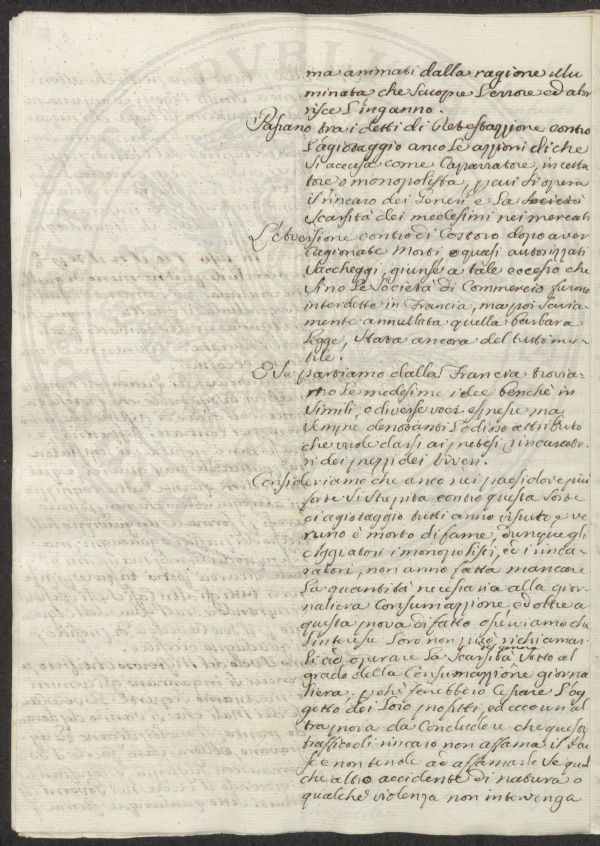 ma animati dalla ragione illu
minata che scuopre l'errore ed abor
risce l'inganno.
Passano tra i detti di detestazzione contro
l'agiotaggio anco le azzioni di che
si accusa come Caparratore, incetta
tore o monopolista, per cui si opera
il rincaro dei Generi e la
scarsità dei medesimi nei mercati
L'Avversione contro di Costoro dopo aver
cagionate Morti e quasi autorizzati
Saccheggi, giunse a tale eccesso che
sino le Società di Commercio furono
interdette in Francia, ma poi savia
mente annullata quella barbara
legge, stata ancora del tutto inu
tile.
E se partiamo dalla Francia trovia
mo le medesime idee benchè in
simili, e diverse voci espresse ma
sempre denotanti l'odioso attributo
che vuole darsi ai pretesi rincarato
ri dei prezzi dei viveri.
Consideriamo che anco nei paesi dove più
forte si strepita contro questa sorte
di agiotaggio tutti anno vissuto, e ve
runo è morto di fame, dunque gl
Aggiatori i monopolisti, ed i rinca
ratori, non anno fatta mancare
la quantità necessaria alla gior
naliera Consumazzione, ed oltre a
questa prova di fatto osserviamo che
l'interesse loro non può richiamar
li ad operare la Scarsità sotto al
grado della Consumazzione giorna
liera, poichè farebbero cessare l'og
getto dei loro profitti, ed ecco un al
tra prova da Concludere che questo
traffico di rincaro non affama il Pae
se e non tende ad affamarlo se qual
che altro accidente di natura o
qualche violenza non intervenga